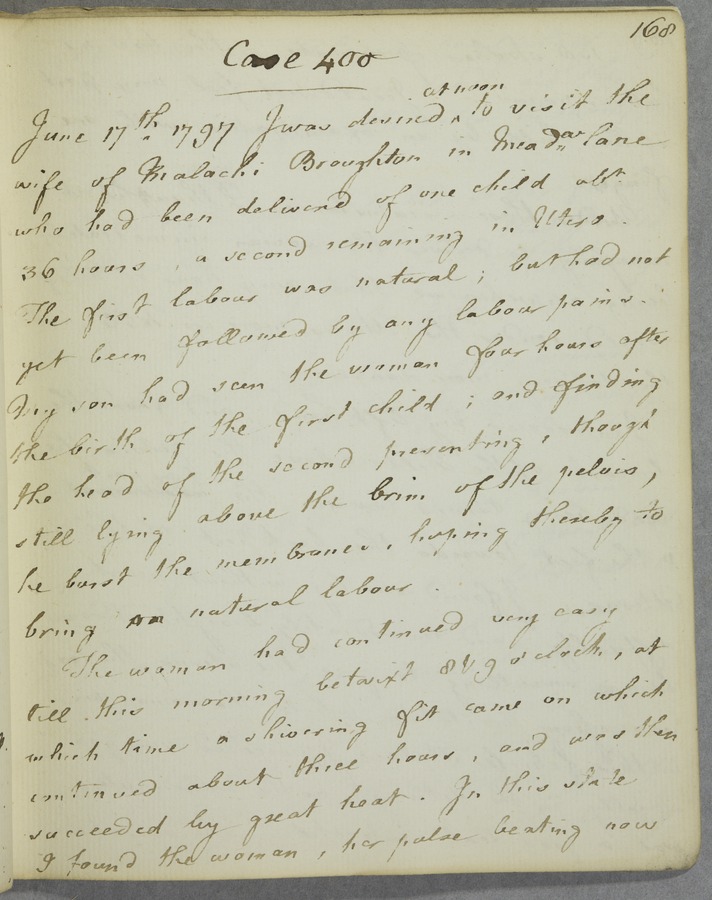 168
Case 400
at noon
June 17th 1797 I was desired ^ to visit the
wife of Malachi Broughton in Meadow lane
who had been delivered of one child abt.
36 hours, a second remaining in Utero.
The first labour was natural; but had not
yet been followed by any labour pains.
My son had seen the woman four hours after
the birth of the first child; and finding
the head of the second presenting, though
still lying above the brim of the pelvis,
he burst the membranes, hoping thereby to
bring on natural labour.
The woman had continued very easy
till this morning betwixt 8 & 9 o'clock, at
which time a shivering fit came on which
continued about three hours, and was then
succeeded by great heat. In this state
I found the woman, her pulse beating now